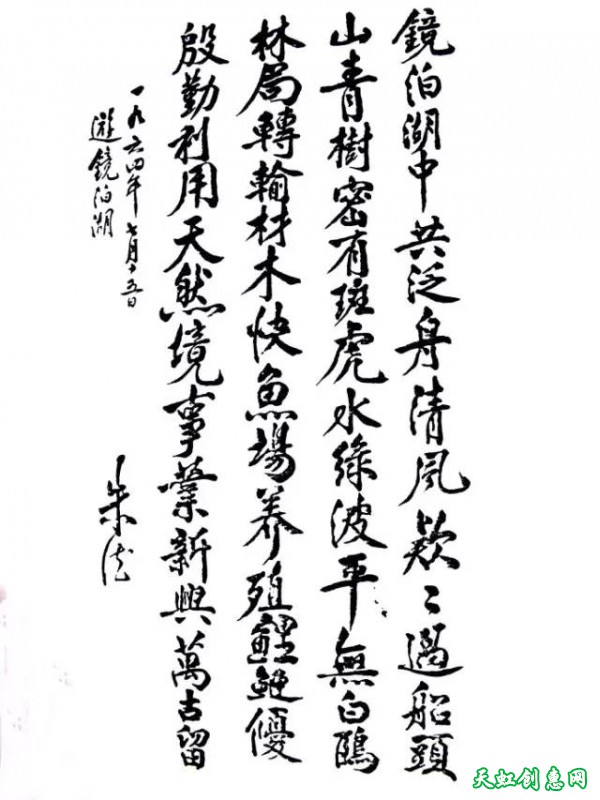 鏡泊湖中共泛舟清風欵〻過船頭
山青樹密有斑虎水綠波平無白鷗
林局轉輸材木快魚場养殖鲤鲫優
殷勤利用天然境事業新興萬古留
一九六四年七月十五日
遊鏡泊湖
朱德
天虹创惠网